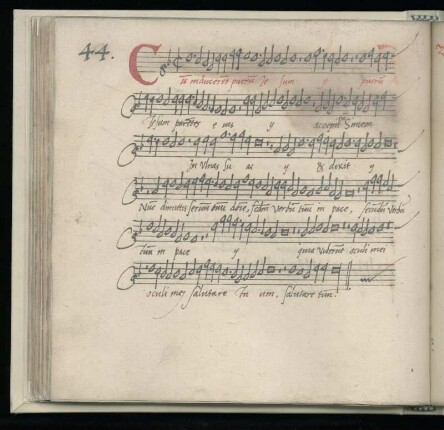 44.
Cu inducerent puerū Je sum y puerū
Jesum parētes e ius y accepit Simeon
In Vlnas su as y & dixit y
Nūc dimittis seruum tuum dñe, secūdū verbū tuū in pace, secūdū verbū
tuū in pace y quia viderūt oculi mei
oculi mei salutare tu um, salutare tuū.